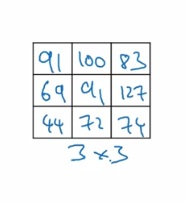 91 100 83
69 91 127
44 72 74
3 x 3